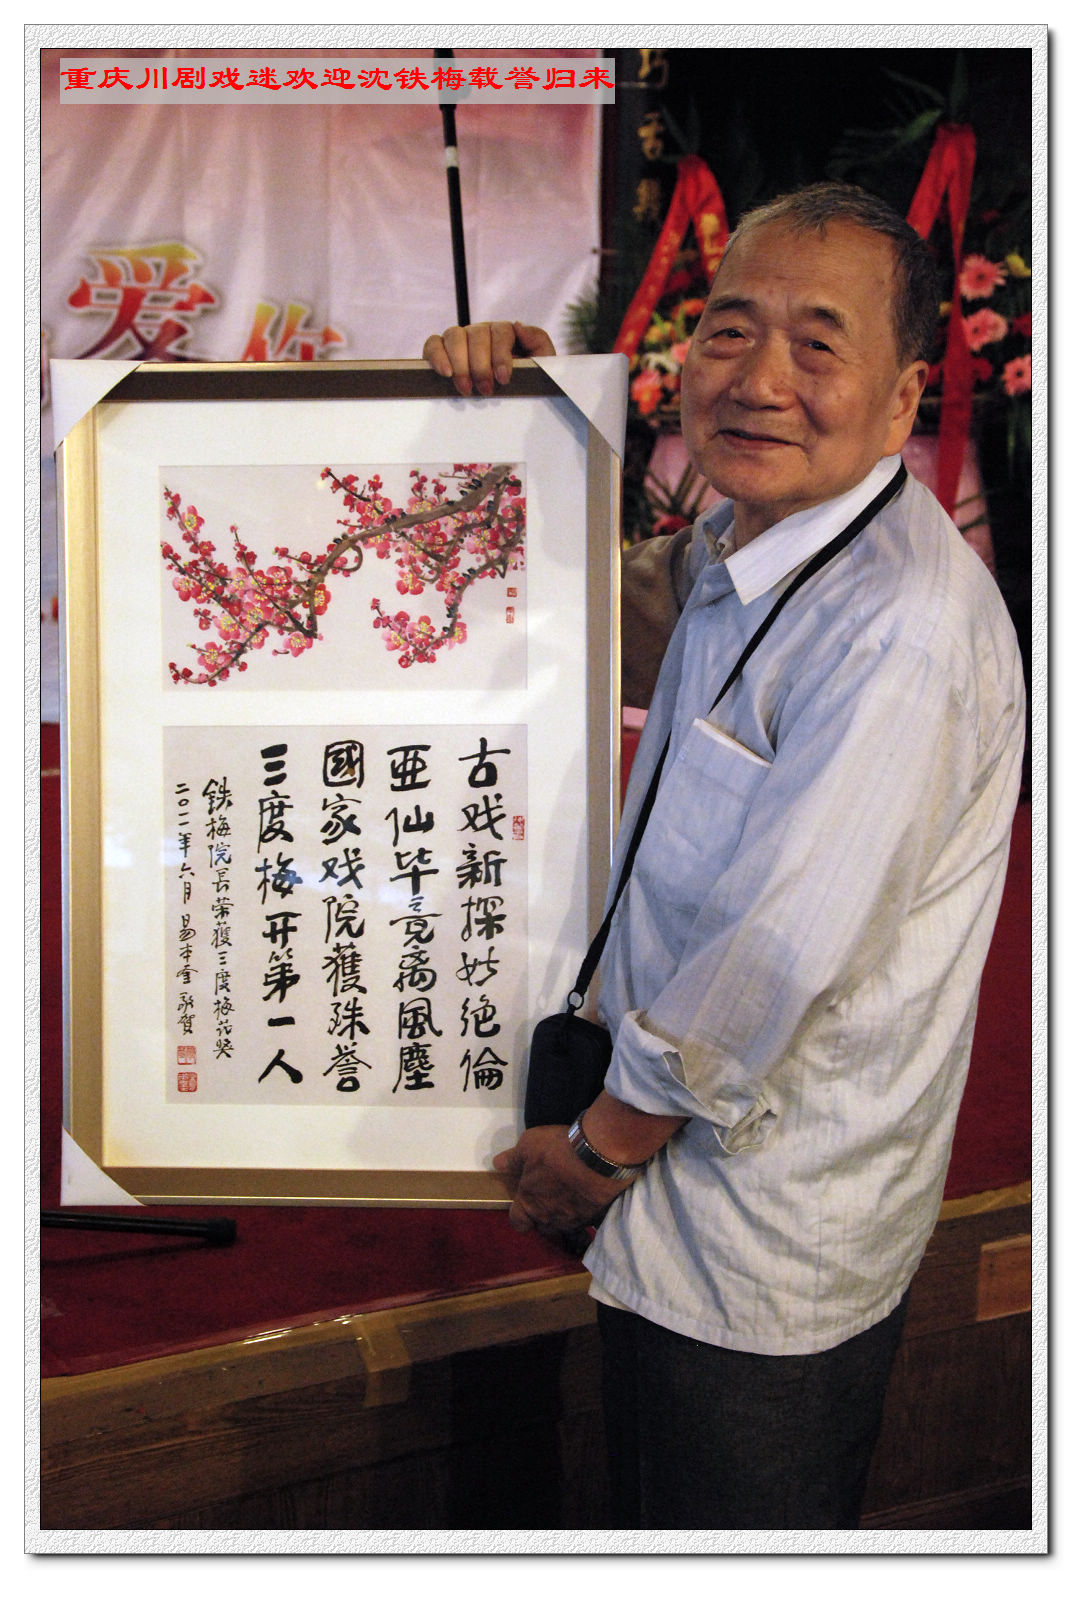 重庆川剧戏迷欢迎沈铁梅载誉归来
爱你
古戏新探始绝倫
亚仙毕竟离風塵
國家戏院獲殊誉
三度梅开第一人
铁梅院长荣獲三度梅花奖
二〇一一年六月易本奎敬贺